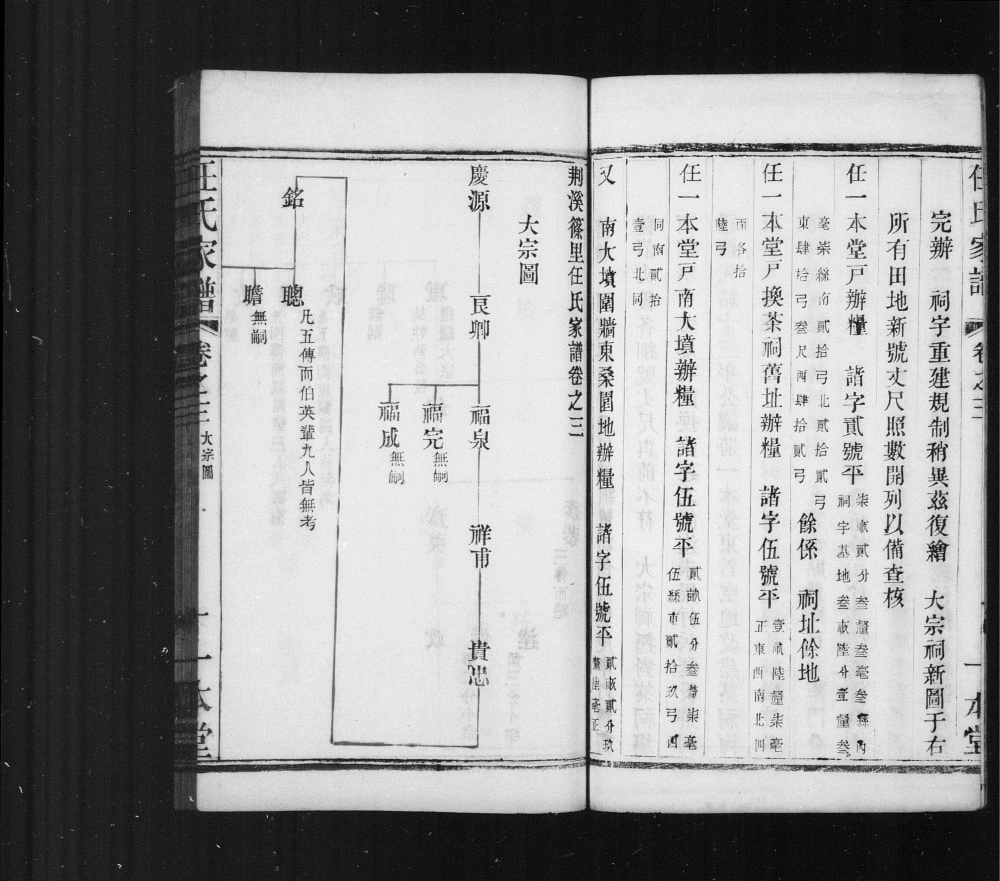 任氏家譜 卷之三 一本堂
完辦 祠宇重建規制稍異茲復繪 大宗祠新圖于右
所有田地新號丈尺照數開列以備查核
任一本堂戸辦糧 諸字貳號平 柒畝貳分叁釐叁毫叁絲內
祠宇基地叁畝陸分壹釐叁
毫柒絲南貳拾弓北貳拾貳弓
東肆拾弓叁尺西肆拾貳弓
餘係 祠址餘地
任一本堂戸換茶祠舊址辦糧 諸字伍號平 壹畝陸釐柒毫
正東西南北四
面各拾
陸弓
任一本堂戸南大墳辦糧 諸字伍號平 貳畝伍分叁釐柒毫
伍絲東貳拾玖弓西
同南貳拾
壹弓北同
又 南大墳圍牆東桑園地辦糧 諸字伍號平 貳畝貳分玖
釐陸毫正
荆溪篠里任氏家譜卷之三
大宗圖
慶源 良卿 福泉 祥甫 貴忠
福完 無嗣
福成 無嗣
銘 聰 凡五傳而伯英輩九人皆無考
瞻 無嗣
任氏家譜 卷之三 大宗圖 一 一本堂